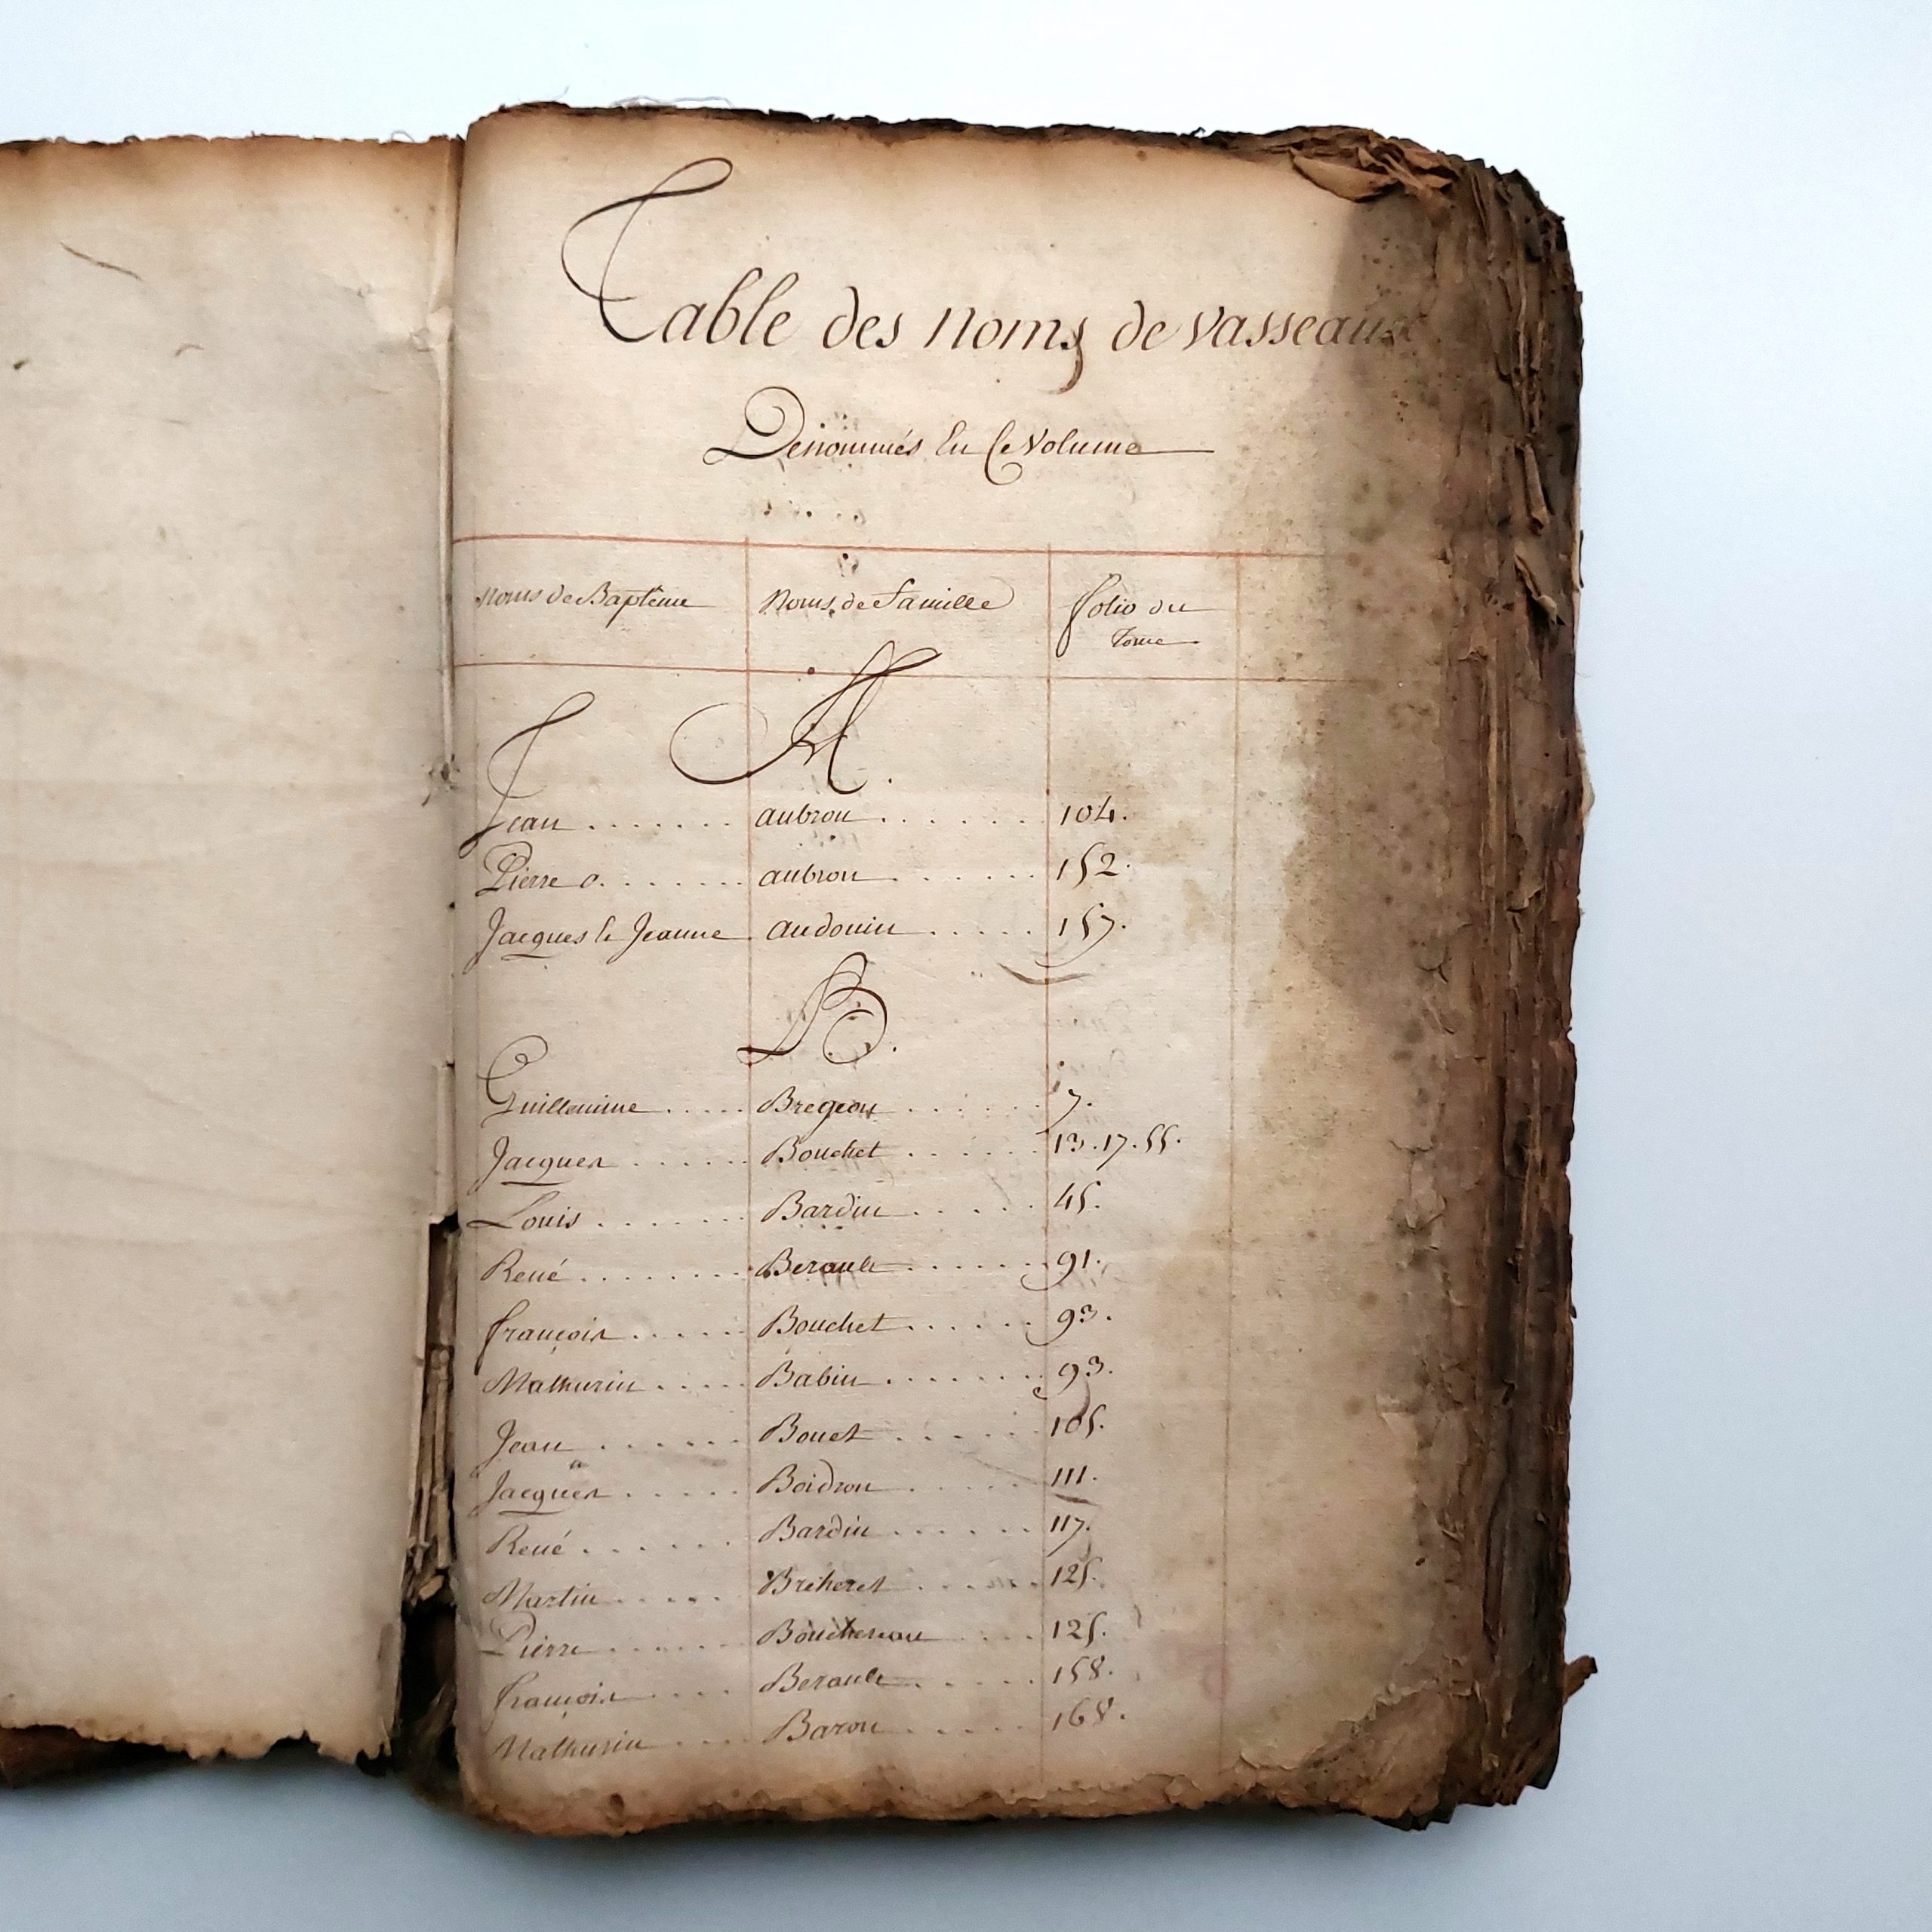 Table des noms de vasseaux
Dénommés En Ce Volume
Noms de Baptême Noms de famille folio du
Tome
A.
Jean ....... aubron ...... 104.
Pierre o. ...... aubron ...... 152.
Jacques le Jeanne . audouin ..... 157.
B.
Guillemine ..... Bregeon ...... 7.
Jacques ...... Bouchet ...... 13. 17. 55.
Louis ....... Bardin ..... 45.
René ........ Berault ...... 91.
françois ..... Bouchet ...... 93.
Mathurin ..... Babin ....... 93.
Jean ...... Bouet ..... 105.
Jacques ..... Boidron ..... 111.
René ...... Bardin ...... 117.
Martin ..... Briheret ..... 125.
Pierre ...... Bouchereau .... 125.
françois .... Berault ..... 158.
Mathurin .... Baron ..... 168.